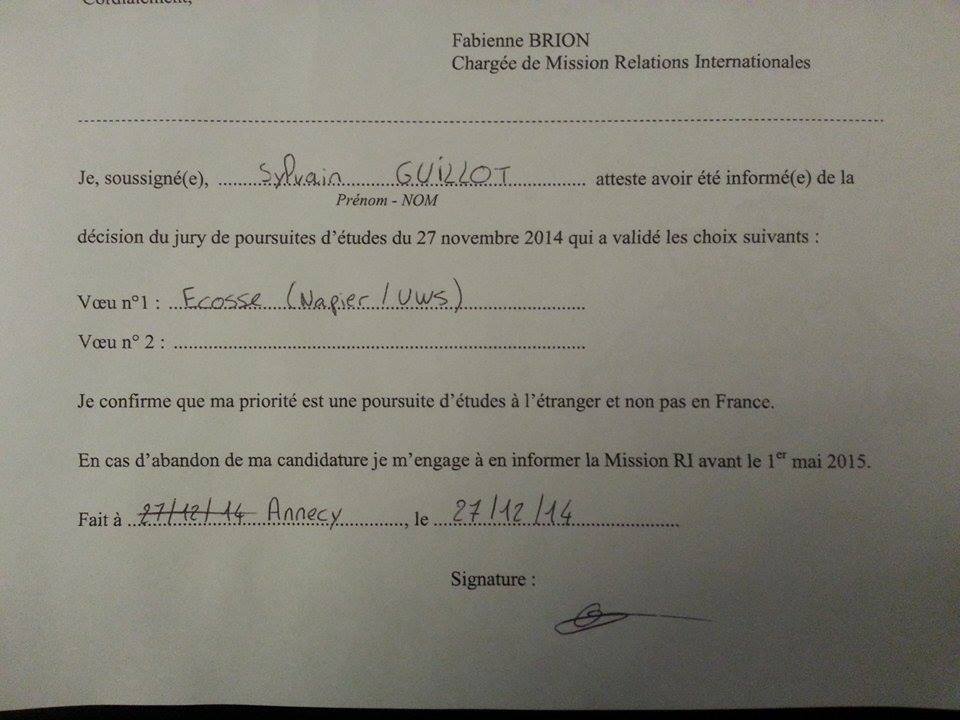 Cordialement,
Fabienne BRION
Chargée de Mission Relations Internationales
Je, soussigné(e), Sylvain GUILLOT atteste avoir été informé(e) de la
Prénom - NOM
décision du jury de poursuites d'études du 27 novembre 2014 qui a validé les choix suivants :
Vœu n°1 : Ecosse (Napier / UWS)
Vœu n° 2 :
Je confirme que ma priorité est une poursuite d'études à l'étranger et non pas en France.
En cas d'abandon de ma candidature je m'engage à en informer la Mission RI avant le 1er mai 2015.
Fait à 27/12/14 Annecy, le 27/12/14
Signature :